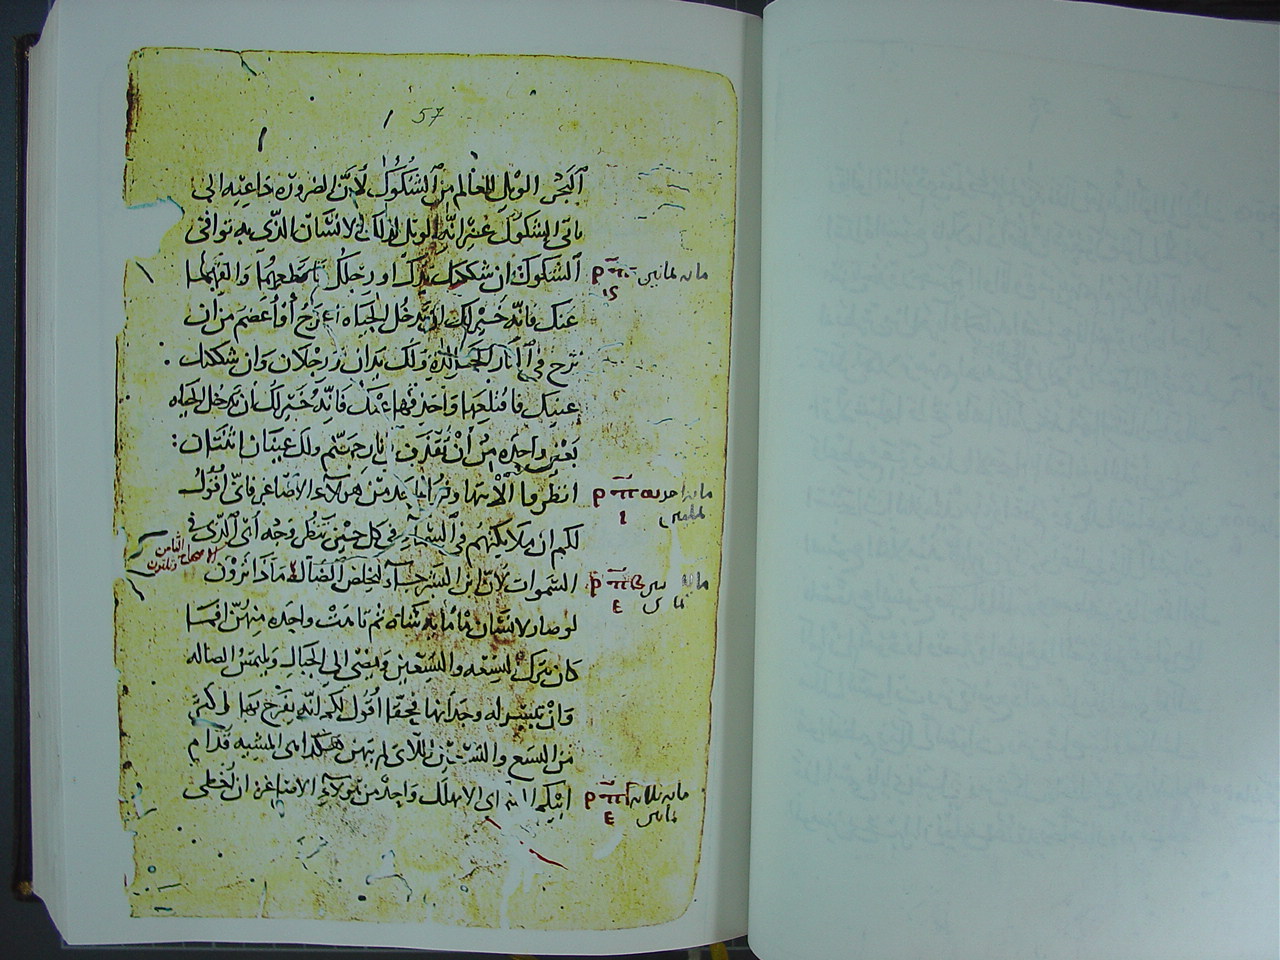 57
البحر الويل للعالم من الشكوك لأنّ الضروره داعيه الى
تاتى الشكوك غير انّه الويل لذلك الانسَان الذّى به توافى
الشكوك ان شككتك يدك او رجلك فاقطعهما والقهما
عنك فانّه خير لك ان تدخُل الحياه اعرَج أو أعضم من ان
تزج فى النار المخلده ولك يدان ورجلان وان شككتك
عينيك فاقتلعها واحذفها عنك فانّه خير لك ان تدخل الحياه
بعين واحده من أن تقذف فى نار جهنّم ولك عينان اثنتان
انظروا الّا تتهاونوا باحد من هولآء الاصَاغر فانّى أقولُ
لكم ان ملايكتهم فى السّمآء فى كل حين تنظر وجه أبى الّذى فى
السّموات لانّ ابن البشر جَآء ليخلص الضَآله مَاذا ترَوْن
لو صار لانسَان مأمايه شاه ثم تاهَتْ واحده منهنّ افما
كان يترك التسعه والتسعين ويمضى الى الجبال ويلتمسُ الضاله
وَانْ تيسّر له وجدَانها فحقّا أقول لكم انّه يفرح بهَا اكثر
من التسع والتسعين اللّاتى لم يتهن هكذا هى المشيه قدام
ابيكم ان لا يهلك واحد من هولآء الاصَاغر ان اخطى
مايه ثمانين
مايه احد وثمانين
الاصحاح الثامن وثلثون
مايه ثلاثه وثمانين